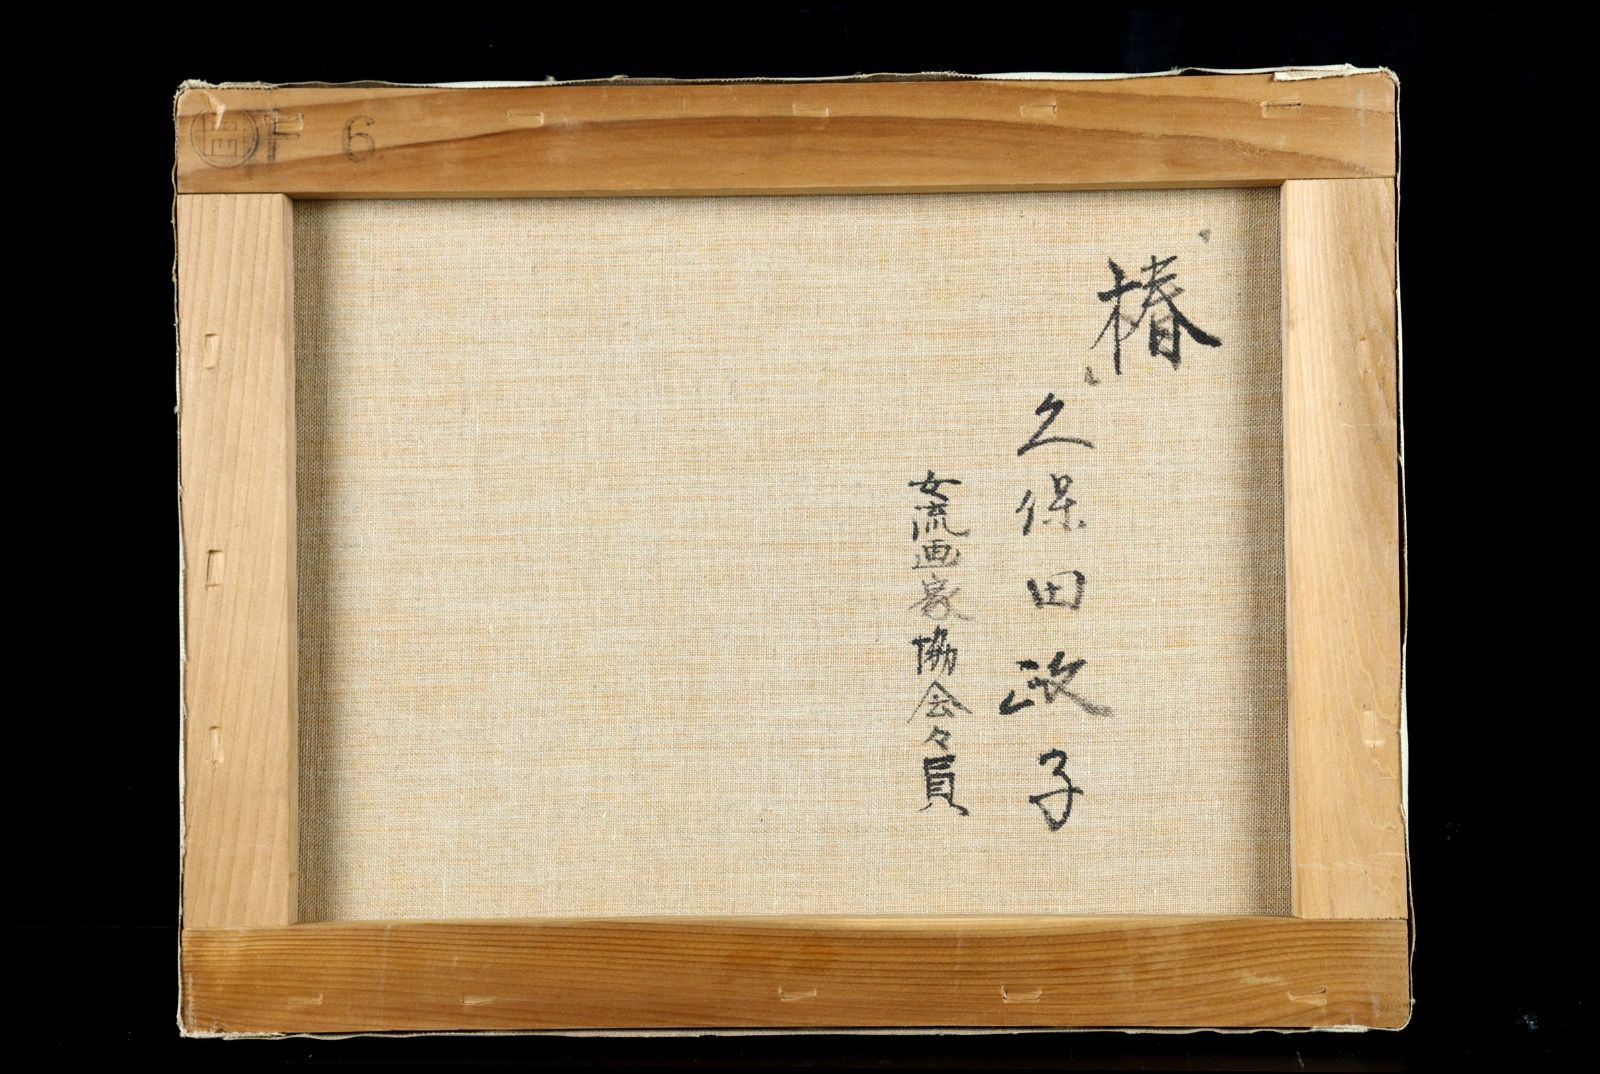 F 6
「椿」
久保田政子
女流画家協会々員